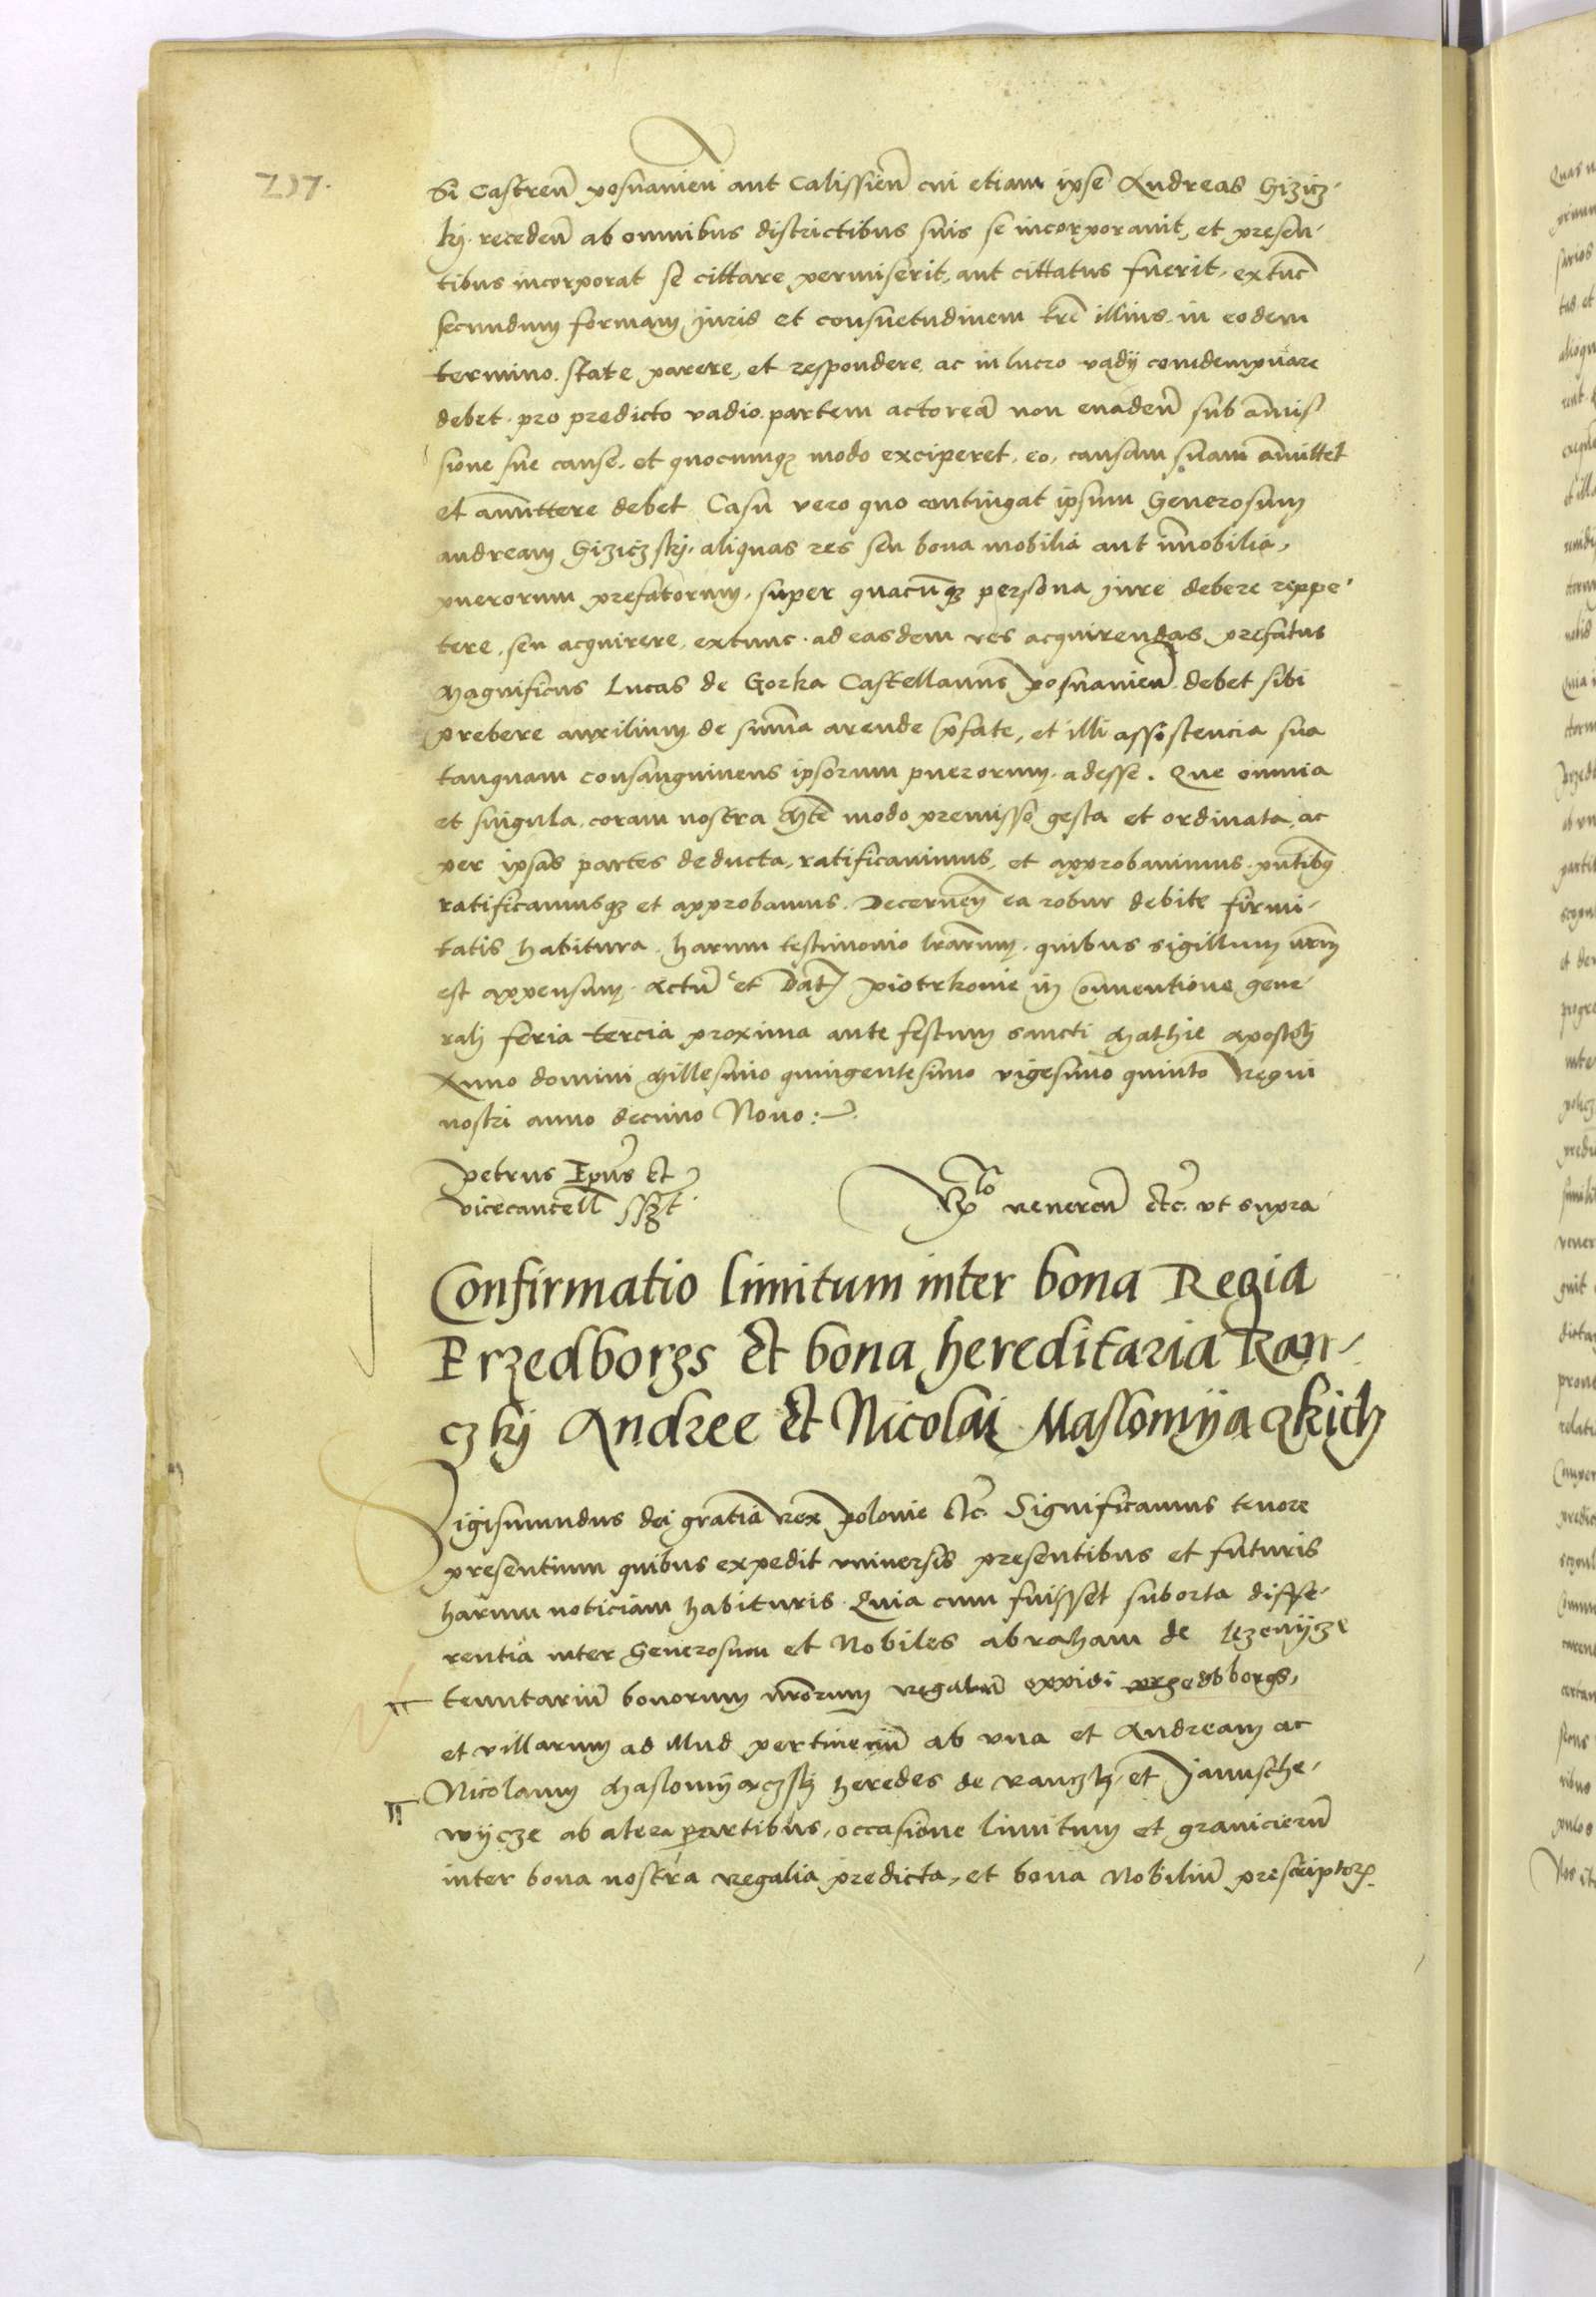 237.
di Castren̄ posnanien̄ aut Calissien̄ cui etiam ipse Andreas Gizicz-
kj receden̄ ab omnibus districtibus suis se incorporavit, et presen-
tibus incorporat se cittare permiserit, aut cittatus fuerit, extunc̄
secundum formam juris et consuetudinem trē illius in eodem
termino state parere, et respondere ac in lucro vadij comdempnare
debet pro predicto vadio partem actoreā non evaden̄ sub āmis-
sione sue cause, et quocumqʒ modo exciperet, eo, causam suam āmittet
et amittere debet Casu vero quo contingat ipsum Generosum
andream Gizicz skj aliquas res seu bona mobilia aut im̄obilia,
puerorum prefatorum, super quacūqʒ persona jure debere reppe-
tere, seu acquirere, extunc ad easdem res acquirendas prefatus
Magnificus Lucas de Gorka Castellanus posnanien̄ debet sibi
prebere auxilium de sum̄a arende p̄fate, et illi assistencia sua
tanquam consanguineus ipsorum puerorum adesse. Que omnia
et singula coram nostra M̄te modo premisso gesta et ordinata, ac
per ipsas partes deducta, ratificavimus, et approbavimus pn̄tibus
ratificamusqʒ et approbamus. Decernen̄ ea robur debite firmi-
tatis habitura harum testimonio lr̄arum, quibus sigillum nr̄m
est appensum. Actū et Dat̄ Piotrkovie in Conventione gene-
ralj feria tercia proxima ante festum sancti Mathie apostolj
Anno domini Millesimo quingentesimo vigesimo quinto Regni
nostri anno decimo Nono:
Petrus Epūs et
vicecancell sszt
Rlo̅ veneren̄ etc̄. ut supra
Confirmatio limitum inter bona Regia
Przedborzs et bona hereditaria Ran-
czkj Andree et Nicolai Maslomijaczkich
Sigismundus dei gratia Rex Polonie etc̄. Significamus tenore
presentium quibus expedit universis presentibus et futuris
harum noticiam habituris. Quia cum fuisset suborta diffe-
rentia inter Generosum et Nobiles abraham de Iezenijcze
tenutariū bonorum nr̄orum regaliū oppidi przedbborgs,
et villarum ad illud pertinenciū ab una et Andream ac
Nicolaum Maslomijaczskj heredes de ranczkj et Janusche-
wijcze ab altera partibus, occasione limitum et granicierū
inter bona nostra regalia predicta, et bona Nobiliū prescriptorꝝ